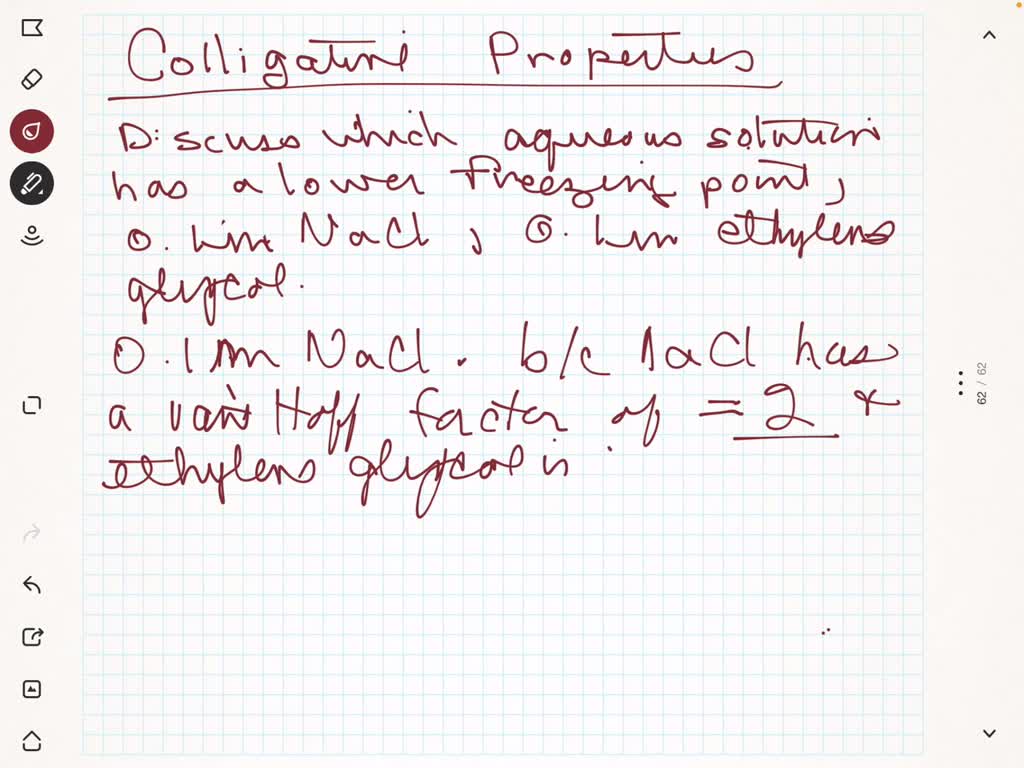 Colligative Properties
Discuss which aqueous solution
has a lower freezing point,
0.1m NaCl, 0.1m ethylene
glycol.
0.1m NaCl. b/c NaCl has
a van't Hoff factor of = 2 +
ethylene glycol is
62 / 62